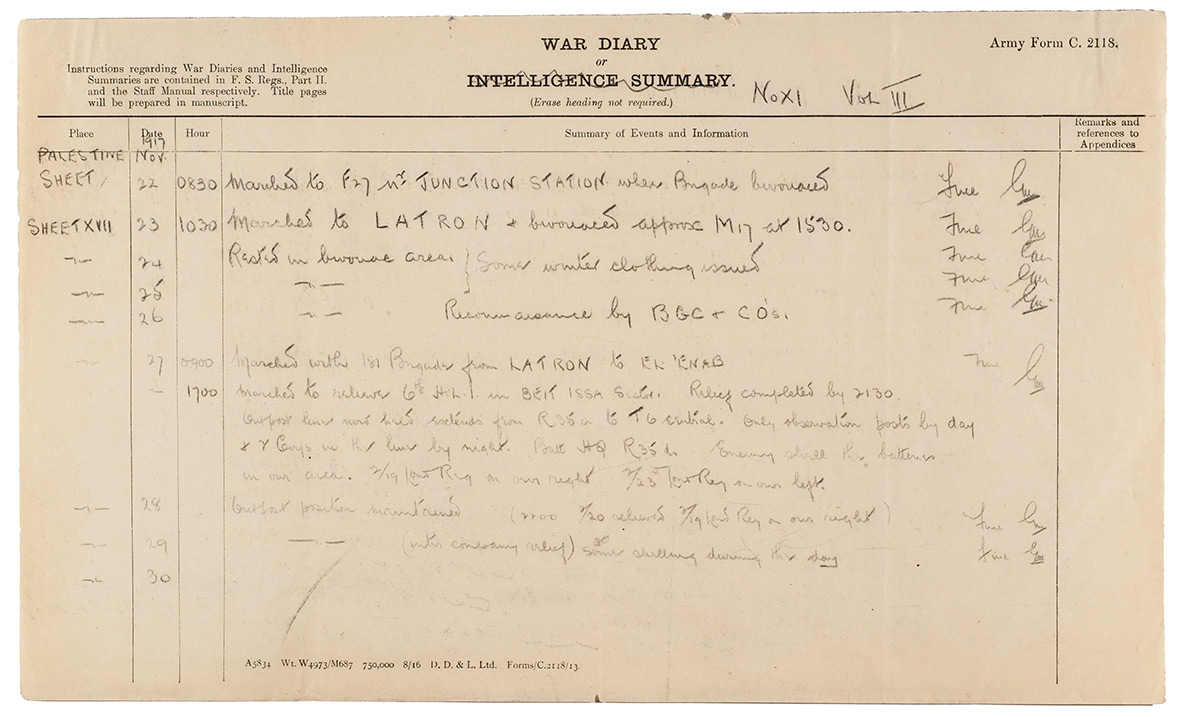 WAR DIARY
or
INTELLIGENCE SUMMARY.
(Erase heading not required.)
Army Form C. 2118.
Instructions regarding War Diaries and Intelligence
Summaries are contained in F. S. Regs., Part II.
and the Staff Manual respectively. Title pages
will be prepared in manuscript.
No XI Vol III
Place Date Hour Summary of Events and Information Remarks and references to Appendices
PALESTINE 1917 Nov.
SHEET 22 0830 Marched to F27 nr JUNCTION STATION when Brigade bivouaced Fine
SHEET XVII 23 1030 Marched to LATRON & bivouaced approx M17 at 1530. Fine
-"- 24 Rested in bivouac area. } Some winter clothing issued Fine
-"- 25 -"- Fine
-"- 26 -"- Reconnaisance by BGC & CO's. Fine
-"- 27 0900 Marched with 181 Brigade from LATRON to EL 'ENAB Fine
- 1700 Marched to relieve 6th H.L.I. in BEIT ISSA Sector. Relief completed by 2130.
Outpost line now held extends from R35a to T6 central. Only observation posts by day
& 2 Coys in the line by night. Batt HQ R35d. Enemy shell the batteries
in our area. 2/19 Lond Reg on our right 2/23rd Lond Reg on our left.
-"- 28 Outpost position maintained (2200 2/20 relieved 2/19 Lond Reg on our right) Fine
-"- 29 -"- (inter company relief) Some shelling during the day Fine
-"- 30
A5834 Wt. W4973/M687 750,000 8/16 D. D. & L. Ltd. Forms/C.2118/13.